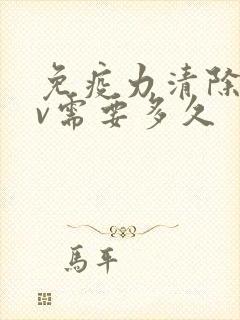 免疫力清除
v需要多久
馬平